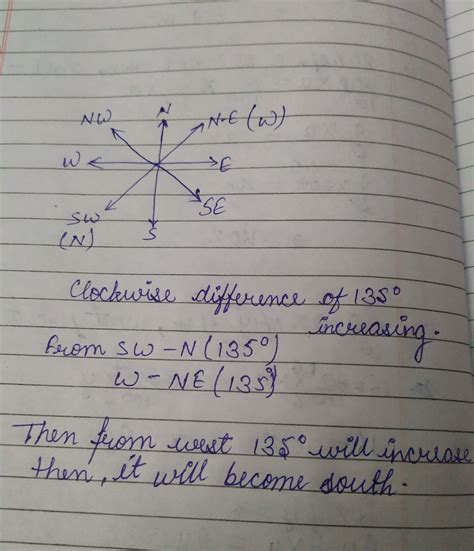 NW N N-E (W)
W E
SW SE
(N) S
Clockwise difference of 135°
increasing.
From SW - N (135°)
W - NE (135°)
Then from west 135° will increase
then, it will become south.